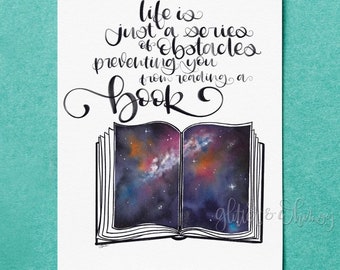 life is
just a series
of obstacles
preventing you
from reading a
book
glitter & Whimsy